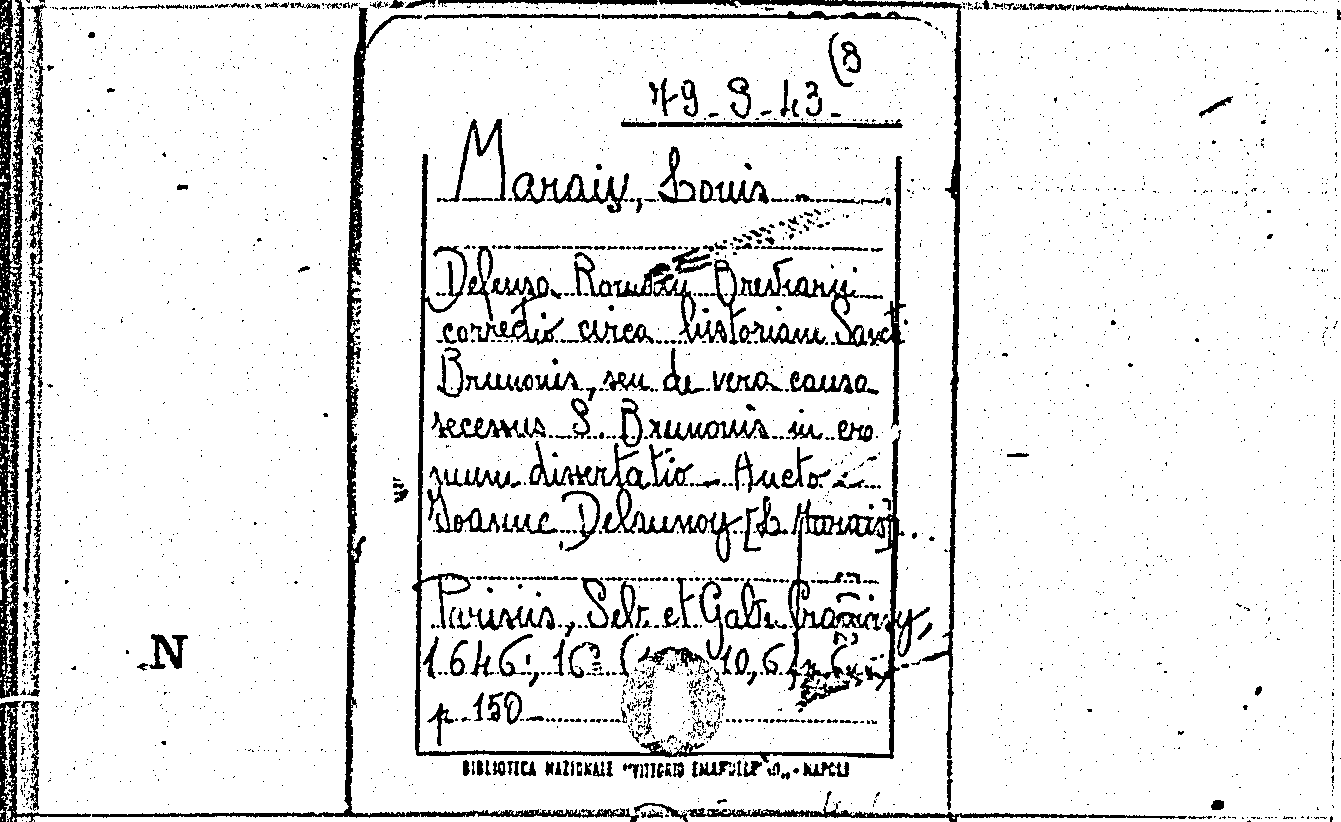 (8
79-9-43-
Marais, Louis
Defensa Romani Breviarii
correctio circa historiam Sancti
Brunonis, seu de vera causa
secessus S. Brunonis in ere
mum dissertatio - Aucto-
Joanne Delaunoy [L. Marais]
Parisiis, Seb. et Gab. Cramoisy,
1646; 16° 10,6
p. 150
N
BIBLIOTECA NAZIONALE "VITTORIO EMANUELE III" - NAPOLI